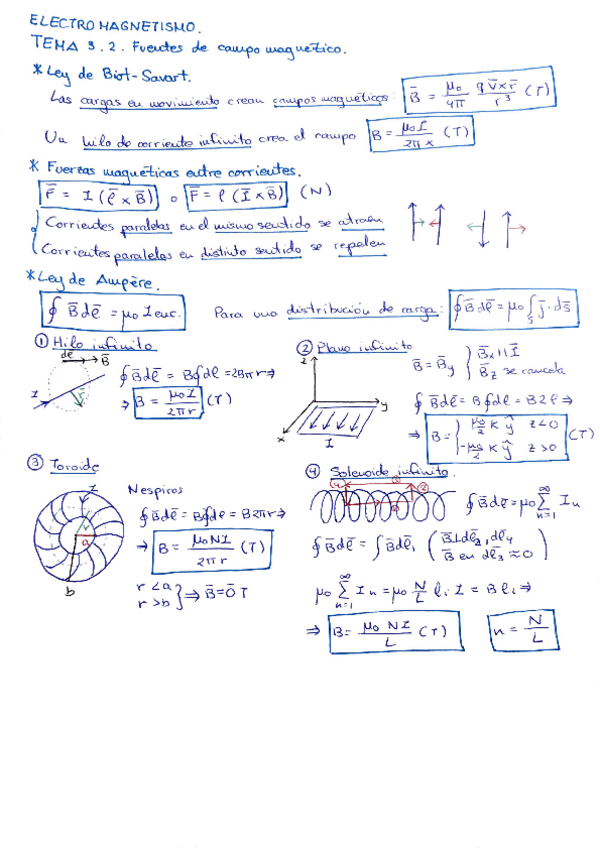 ELECTROMAGNETISMO.
TEMA 3.2. Fuentes de campo magnético.
* Ley de Biot-Savart.
Las cargas en movimiento crean campos magnéticos: B̄ = μ₀/4π q v̄ x r̄ / r³ (T)
Un hilo de corriente infinito crea el campo B = μ₀I / 2πx (T)
* Fuerzas magnéticas entre corrientes.
F̄ = I (ℓ̄ x B̄) o F̄ = ℓ (Ī x B̄) (N)
Corrientes paralelas en el mismo sentido se atraen
Corrientes paralelas en distinto sentido se repelen
* Ley de Ampère.
∮ B̄dℓ̄ = μ₀ I enc. Para una distribución de carga: ∮B̄dℓ̄ = μ₀ ∫s j̄ · ds̄
① Hilo infinito
dℓ̄ B̄
I r
∮B̄dℓ̄ = B∮dℓ = 2Bπr ⇒
⇒ B = μ₀I / 2πr (T)
② Plano infinito
z y x I
B̄ = B̄y } B̄x || Ī
B̄z se cancela
∮ B̄dℓ̄ = B∮dℓ = B2ℓ ⇒
⇒ B = { μ₀/2 K ŷ z<0
-μ₀/2 K ŷ z>0 (T)
③ Toroide
I r a b
N espiras
∮B̄dℓ̄ = B∮dℓ = B2πr ⇒
⇒ B = μ₀NI / 2πr (T)
r<a
r>b } ⇒ B̄ = 0̄ T
④ Solenoide infinito.
(4) (3) (2) (1)
∮B̄dℓ̄ = μ₀ ∑ₙ₌₁^∞ Iₙ
∮B̄dℓ̄ = ∫B̄dℓ̄₁ ( B̄⊥dℓ̄₂,dℓ̄₄
B̄ en dℓ̄₃ ≈ 0 )
μ₀ ∑ₙ₌₁^∞ Iₙ = μ₀ N/L ℓ₁ I = Bℓ₁ ⇒
⇒ B = μ₀ NI / L (T) n = N/L